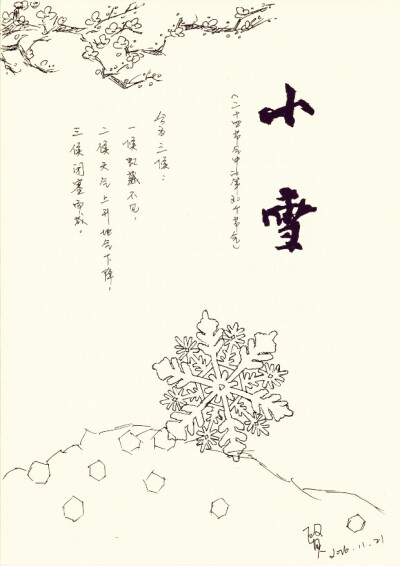 小雪
(二十四节气中第20个节气)
分为三候:
一候虹藏不见,
二候天气上升地气下降,
三候闭塞而成
2016.11.21